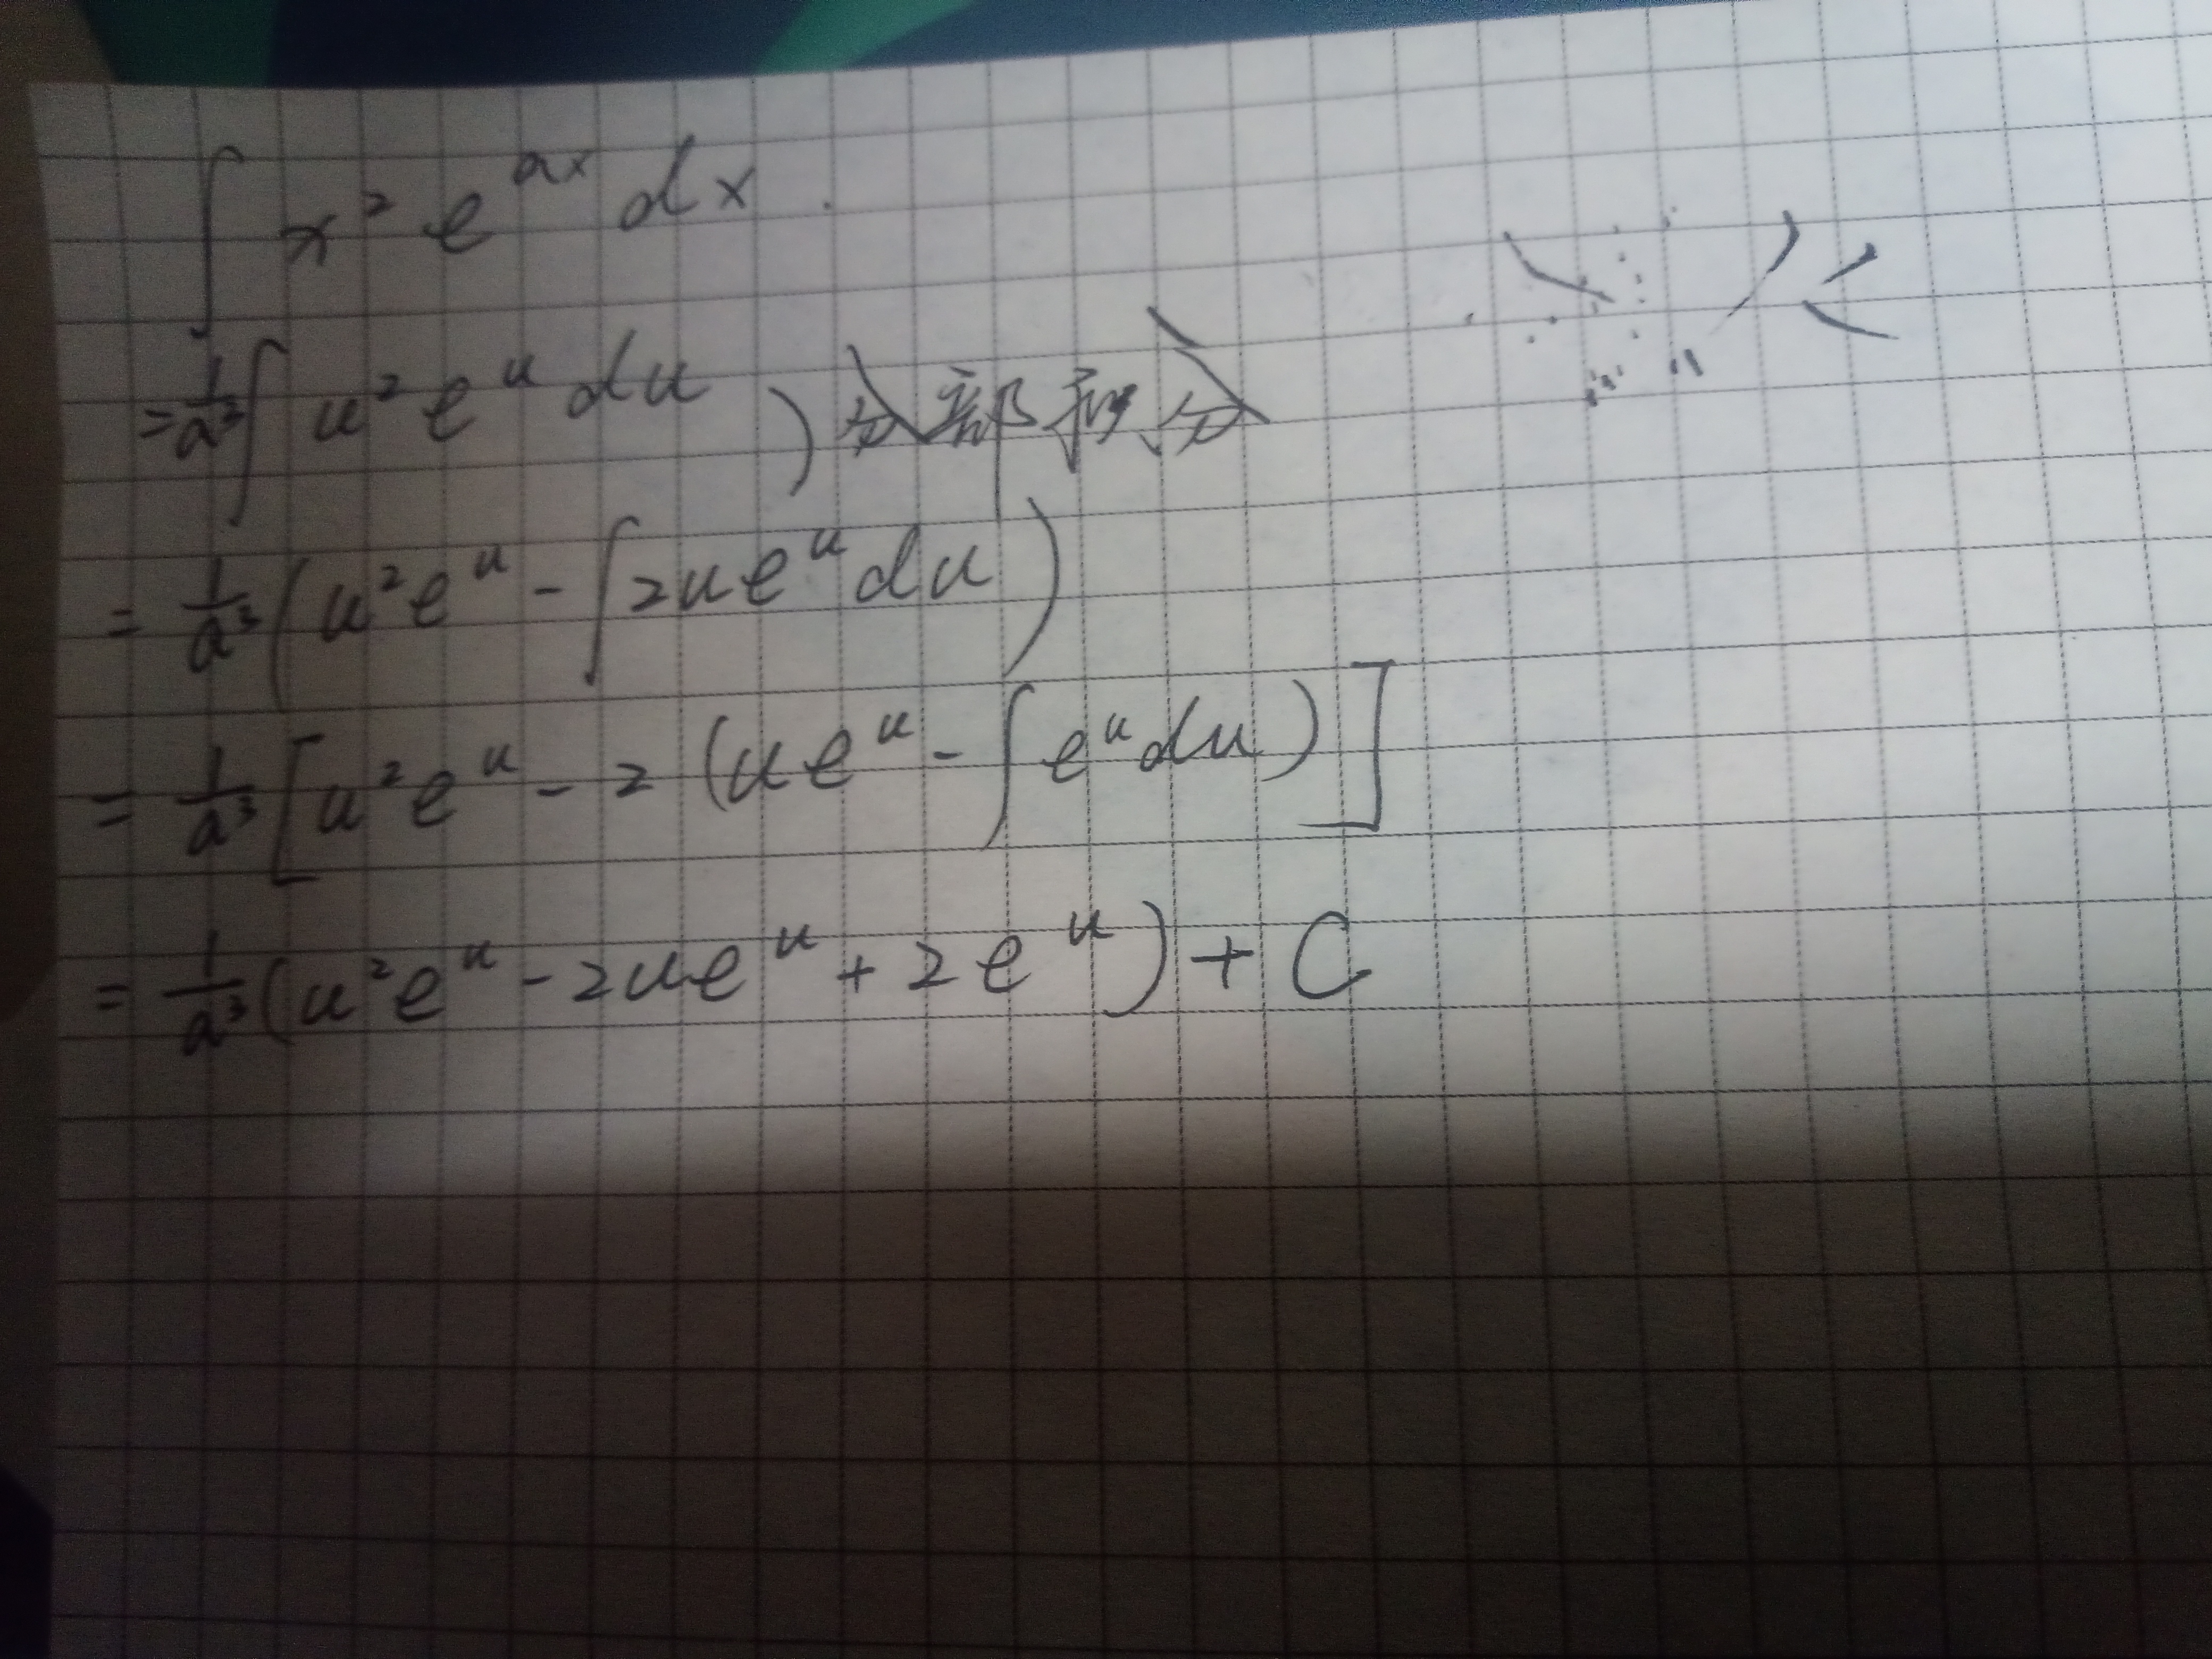 ∫ x² e^{ax} dx .
= 1/a³ ∫ u² e^u du ) 分部积分
= 1/a³ ( u² e^u - ∫ 2u e^u du )
= 1/a³ [ u² e^u - 2 ( u e^u - ∫ e^u du ) ]
= 1/a³ ( u² e^u - 2u e^u + 2 e^u ) + C